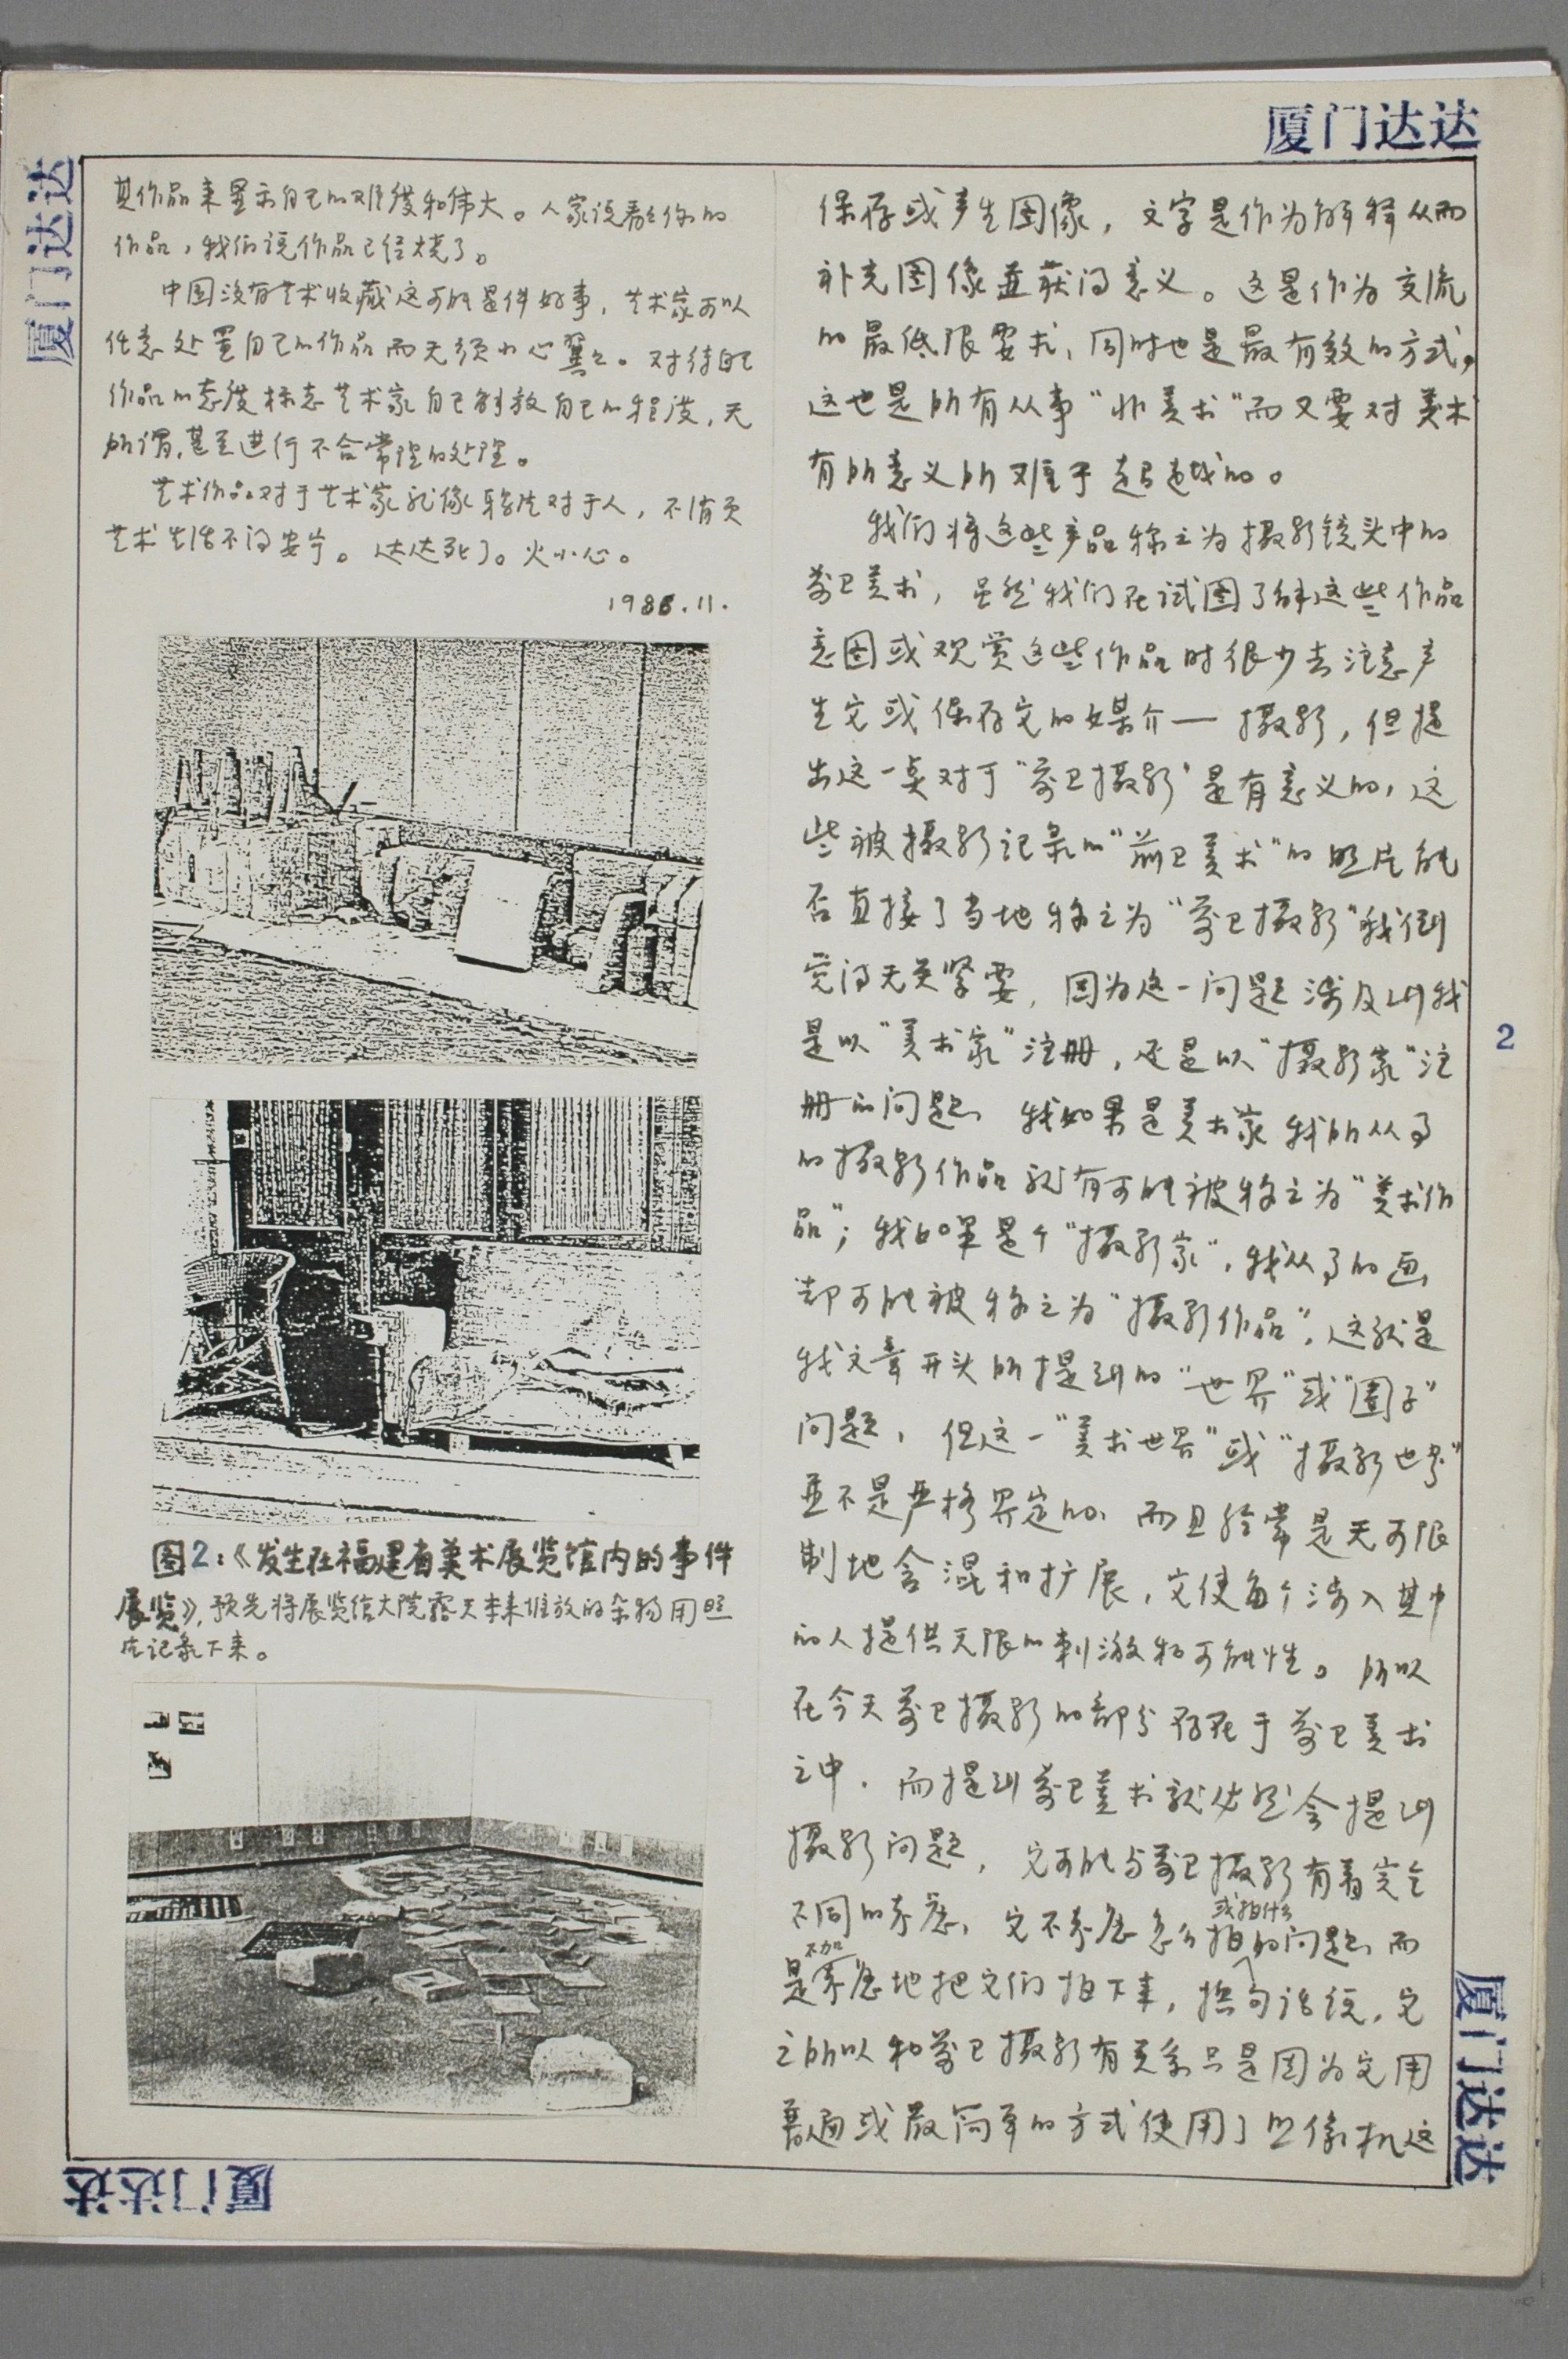 厦门达达
厦门达达
其作品来显示自己的难度和伟大。人家说看看你的
作品,我们说作品已经烧了。
中国没有艺术收藏这可能是件好事,艺术家可以
任意处置自己的作品而无须小心翼々。对待自己
作品的态度标志艺术家自己解放自己的程度,无
所谓,甚至进行不合常理的处理。
艺术作品对于艺术家就像鸦片对于人,不消灭
艺术生活不得安宁。达达死了。火小心。
1986.11.
图2:《发生在福建省美术展览馆内的事件
展览》,预先将展览馆大院露天本来堆放的杂物用照
片记录下来。
保存或产生图像,文字是作为解释从而
补充图像并获得意义。这是作为交流
的最低限要求,同时也是最有效的方式,
这也是所有从事“非美术”而又要对美术
有所意义所难于超越的。
我们将这些产品称之为摄影镜头中的
前卫美术,虽然我们在试图了解这些作品
意图或观赏这些作品时很少去注意产
生它或保存它的媒介—摄影,但提
出这一点对于“前卫摄影”是有意义的,这
些被摄影记录的“前卫美术”的照片能
否直接了当地称之为“前卫摄影”我倒
觉得无关紧要,因为这一问题涉及到我
是以“美术家”注册,还是以“摄影家”注
册的问题,我如果是美术家我所从事
的摄影作品就有可能被称之为“美术作
品”;我如果是个“摄影家”,我从事的画
却可能被称之为“摄影作品”,这就是
我文章开头所提到的“世界”或“圈子”
问题,但这一“美术世界”或“摄影世界”
并不是严格界定的,而且经常是无可限
制地含混和扩展,它使每个涉入其中
的人提供无限的刺激和可能性。所以
在今天前卫摄影的部分存在于前卫美术
之中,而提到前卫美术就必然会提到
摄影问题,它可能与前卫摄影有着完全
不同的考虑,它不考虑怎么拍或拍什么的问题,而
是不加考虑地把它们拍下来,换句话说,它
之所以和前卫摄影有关系只是因为它用
普通或最简单的方式使用了照像机这
2
厦门达达
厦门达达